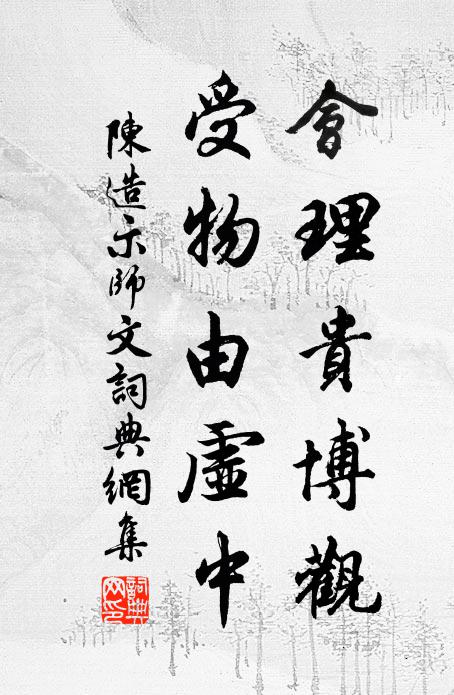 會理貴博觀
受物由虛中
陳造示師文詞典網集
詞典网印